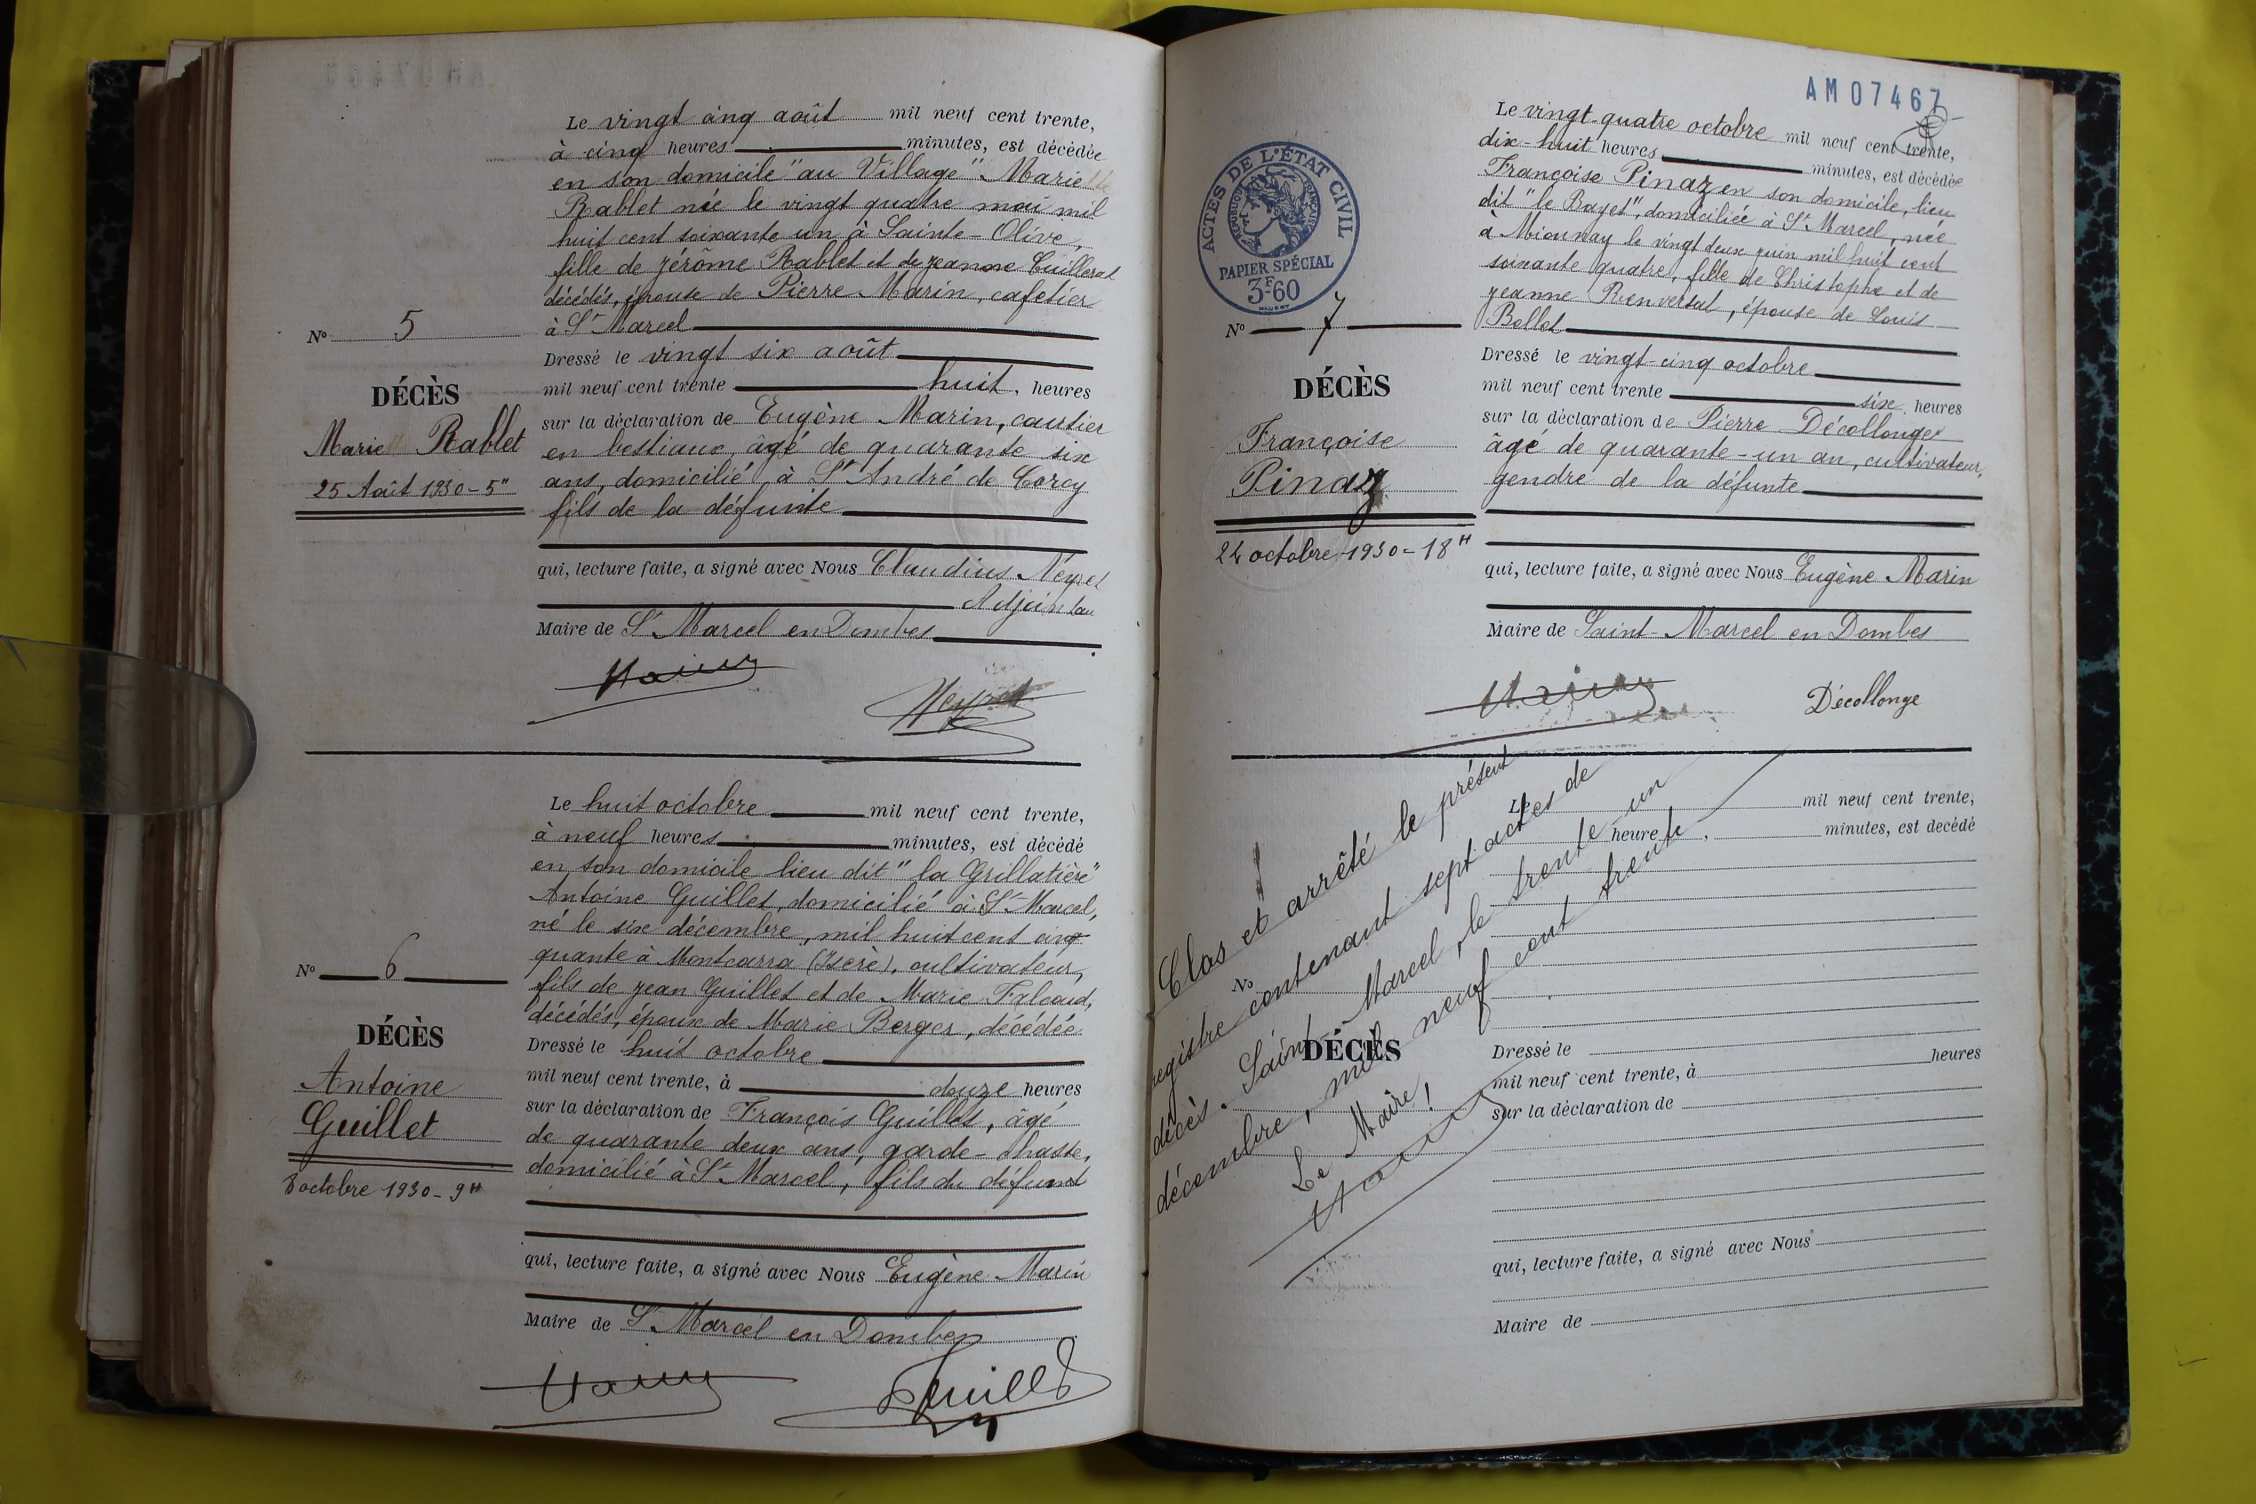 Le vingt cinq août mil neuf cent trente,
à cinq heures minutes, est décédée
en son domicile "au Village" Marie
Rablet née le vingt quatre mai mil
huit cent soixante un à Sainte-Olive,
fille de Jérôme Rablet et de Jeanne Cuillerat
décédés, épouse de Pierre Marin, cafetier
à St Marcel
Nº 5
DÉCÈS
Marie Rablet
25 Août 1930 - 5"
Dressé le vingt six août
mil neuf cent trente huit, heures
sur la déclaration de Eugène Marin, courtier
en bestiaux, âgé de quarante six
ans, domicilié à St André de Corcy
fils de la défunte
qui, lecture faite, a signé avec Nous Claudius Neyret
Adjoint au
Maire de St Marcel en Dombes
Marin
Neyret
Le huit octobre mil neuf cent trente,
à neuf heures minutes, est décédé
en son domicile lieu dit "la Grillatière"
Antoine Guillet, domicilié à St Marcel,
né le six décembre, mil huit cent cinq
quante à Montcarra (Isère), cultivateur,
fils de Jean Guillet et de Marie
décédés, époux de Marie Berger, décédée
Nº 6
DÉCÈS
Antoine
Guillet
8 octobre 1930 - 9H
Dressé le huit octobre
mil neuf cent trente, à douze heures
sur la déclaration de François Guillet, âgé
de quarante deux ans, garde-chasse,
domicilié à St Marcel, fils du défunt
qui, lecture faite, a signé avec Nous Eugène Marin
Maire de St Marcel en Dombes
Marin
Guillet
AM07467
ACTES DE L'ÉTAT CIVIL
RÉPUBLIQUE FRANÇAISE
PAPIER SPÉCIAL
3F60
Le vingt-quatre octobre mil neuf cent trente,
dix-huit heures minutes, est décédée
Françoise Pinaz en son domicile, lieu
dit "le Bayet", domiciliée à St Marcel, née
à Mionnay le vingt deux juin mil huit cent
soixante quatre, fille de Christophe et de
Jeanne Renversat, épouse de Louis
Bellet
Nº 7
DÉCÈS
Françoise
Pinaz
24 octobre 1930 - 18H
Dressé le vingt-cinq octobre
mil neuf cent trente six heures
sur la déclaration de Pierre Décollonge
âgé de quarante-un an, cultivateur,
gendre de la défunte
qui, lecture faite, a signé avec Nous Eugène Marin
Maire de Saint-Marcel en Dombes
Marin
Décollonge
Clos et arrêté le présent
registre contenant sept actes de
décès. Saint-Marcel, le trente un
décembre, mil neuf cent trente
Le Maire!
Marin
Le mil neuf cent trente,
heure , minutes, est decédé
Nº
DÉCÈS
Dressé le
heures
mil neuf cent trente, à
sur la déclaration de
qui, lecture faite, a signé avec Nous
Maire de